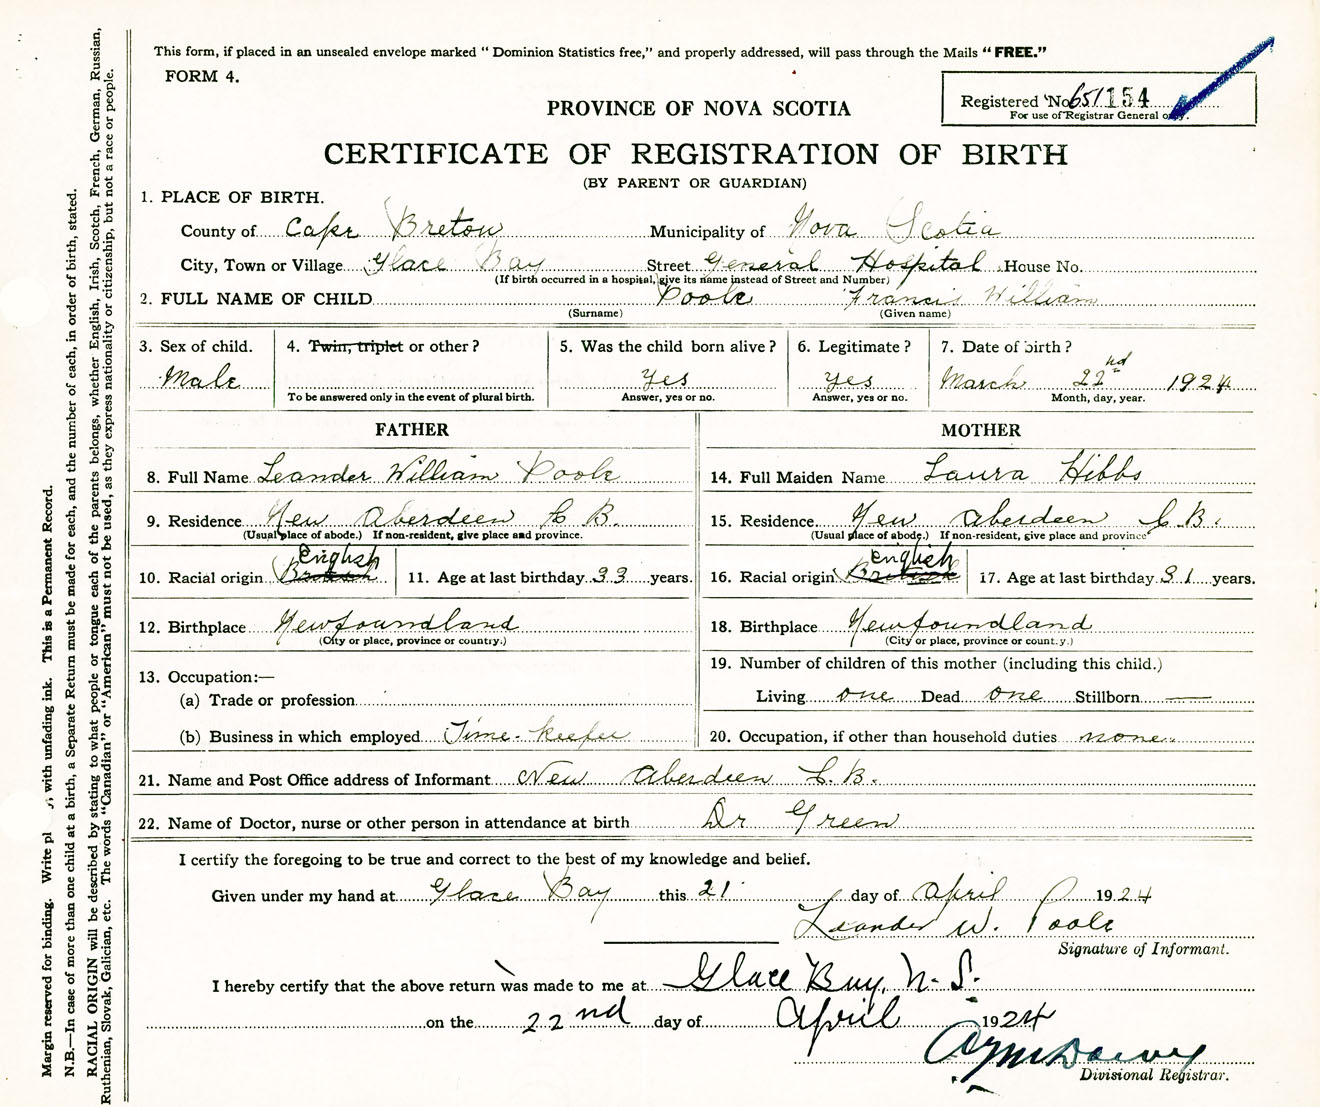 This form, if placed in an unsealed envelope marked "Dominion Statistics free," and properly addressed, will pass through the Mails "FREE."
FORM 4.
Registered No. 651154
For use of Registrar General only.
PROVINCE OF NOVA SCOTIA
CERTIFICATE OF REGISTRATION OF BIRTH
(BY PARENT OR GUARDIAN)
1. PLACE OF BIRTH.
County of Cape Breton Municipality of Nova Scotia
City, Town or Village Glace Bay Street General Hospital House No.
(If birth occurred in a hospital, give its name instead of Street and Number)
2. FULL NAME OF CHILD Poole Francis William
(Surname) (Given name)
3. Sex of child. 4. Twin, triplet or other? 5. Was the child born alive? 6. Legitimate? 7. Date of birth?
Male Yes Yes March 22nd 1924
To be answered only in the event of plural birth. Answer, yes or no. Answer, yes or no. Month, day, year.
FATHER MOTHER
8. Full Name Leander William Poole 14. Full Maiden Name Laura Hibbs
9. Residence New Aberdeen C. B. 15. Residence New Aberdeen C. B.
(Usual place of abode.) If non-resident, give place and province. (Usual place of abode.) If non-resident, give place and province
English English
10. Racial origin British 11. Age at last birthday 33 years. 16. Racial origin British 17. Age at last birthday 31 years.
12. Birthplace Newfoundland 18. Birthplace Newfoundland
(City or place, province or country.) (City or place, province or country.)
13. Occupation:— 19. Number of children of this mother (including this child.)
(a) Trade or profession Living one Dead one Stillborn —
(b) Business in which employed Time-keeper 20. Occupation, if other than household duties none.
21. Name and Post Office address of Informant New Aberdeen C. B.
22. Name of Doctor, nurse or other person in attendance at birth Dr Green
I certify the foregoing to be true and correct to the best of my knowledge and belief.
Given under my hand at Glace Bay this 21 day of April 1924
Leander W. Poole
Signature of Informant.
I hereby certify that the above return was made to me at Glace Bay, N. S.
on the 22nd day of April 1924
Divisional Registrar.
Margin reserved for binding. Write pl y, with unfading ink. This is a Permanent Record.
N.B.—In case of more than one child at a birth, a Separate Return must be made for each, and the number of each, in order of birth, stated.
RACIAL ORIGIN will be described by stating to what people or tongue each of the parents belongs, whether English, Irish, Scotch, French, German, Russian,
Ruthenian, Slovak, Galician, etc. The words "Canadian" or "American" must not be used, as they express nationality or citizenship, but not a race or people.